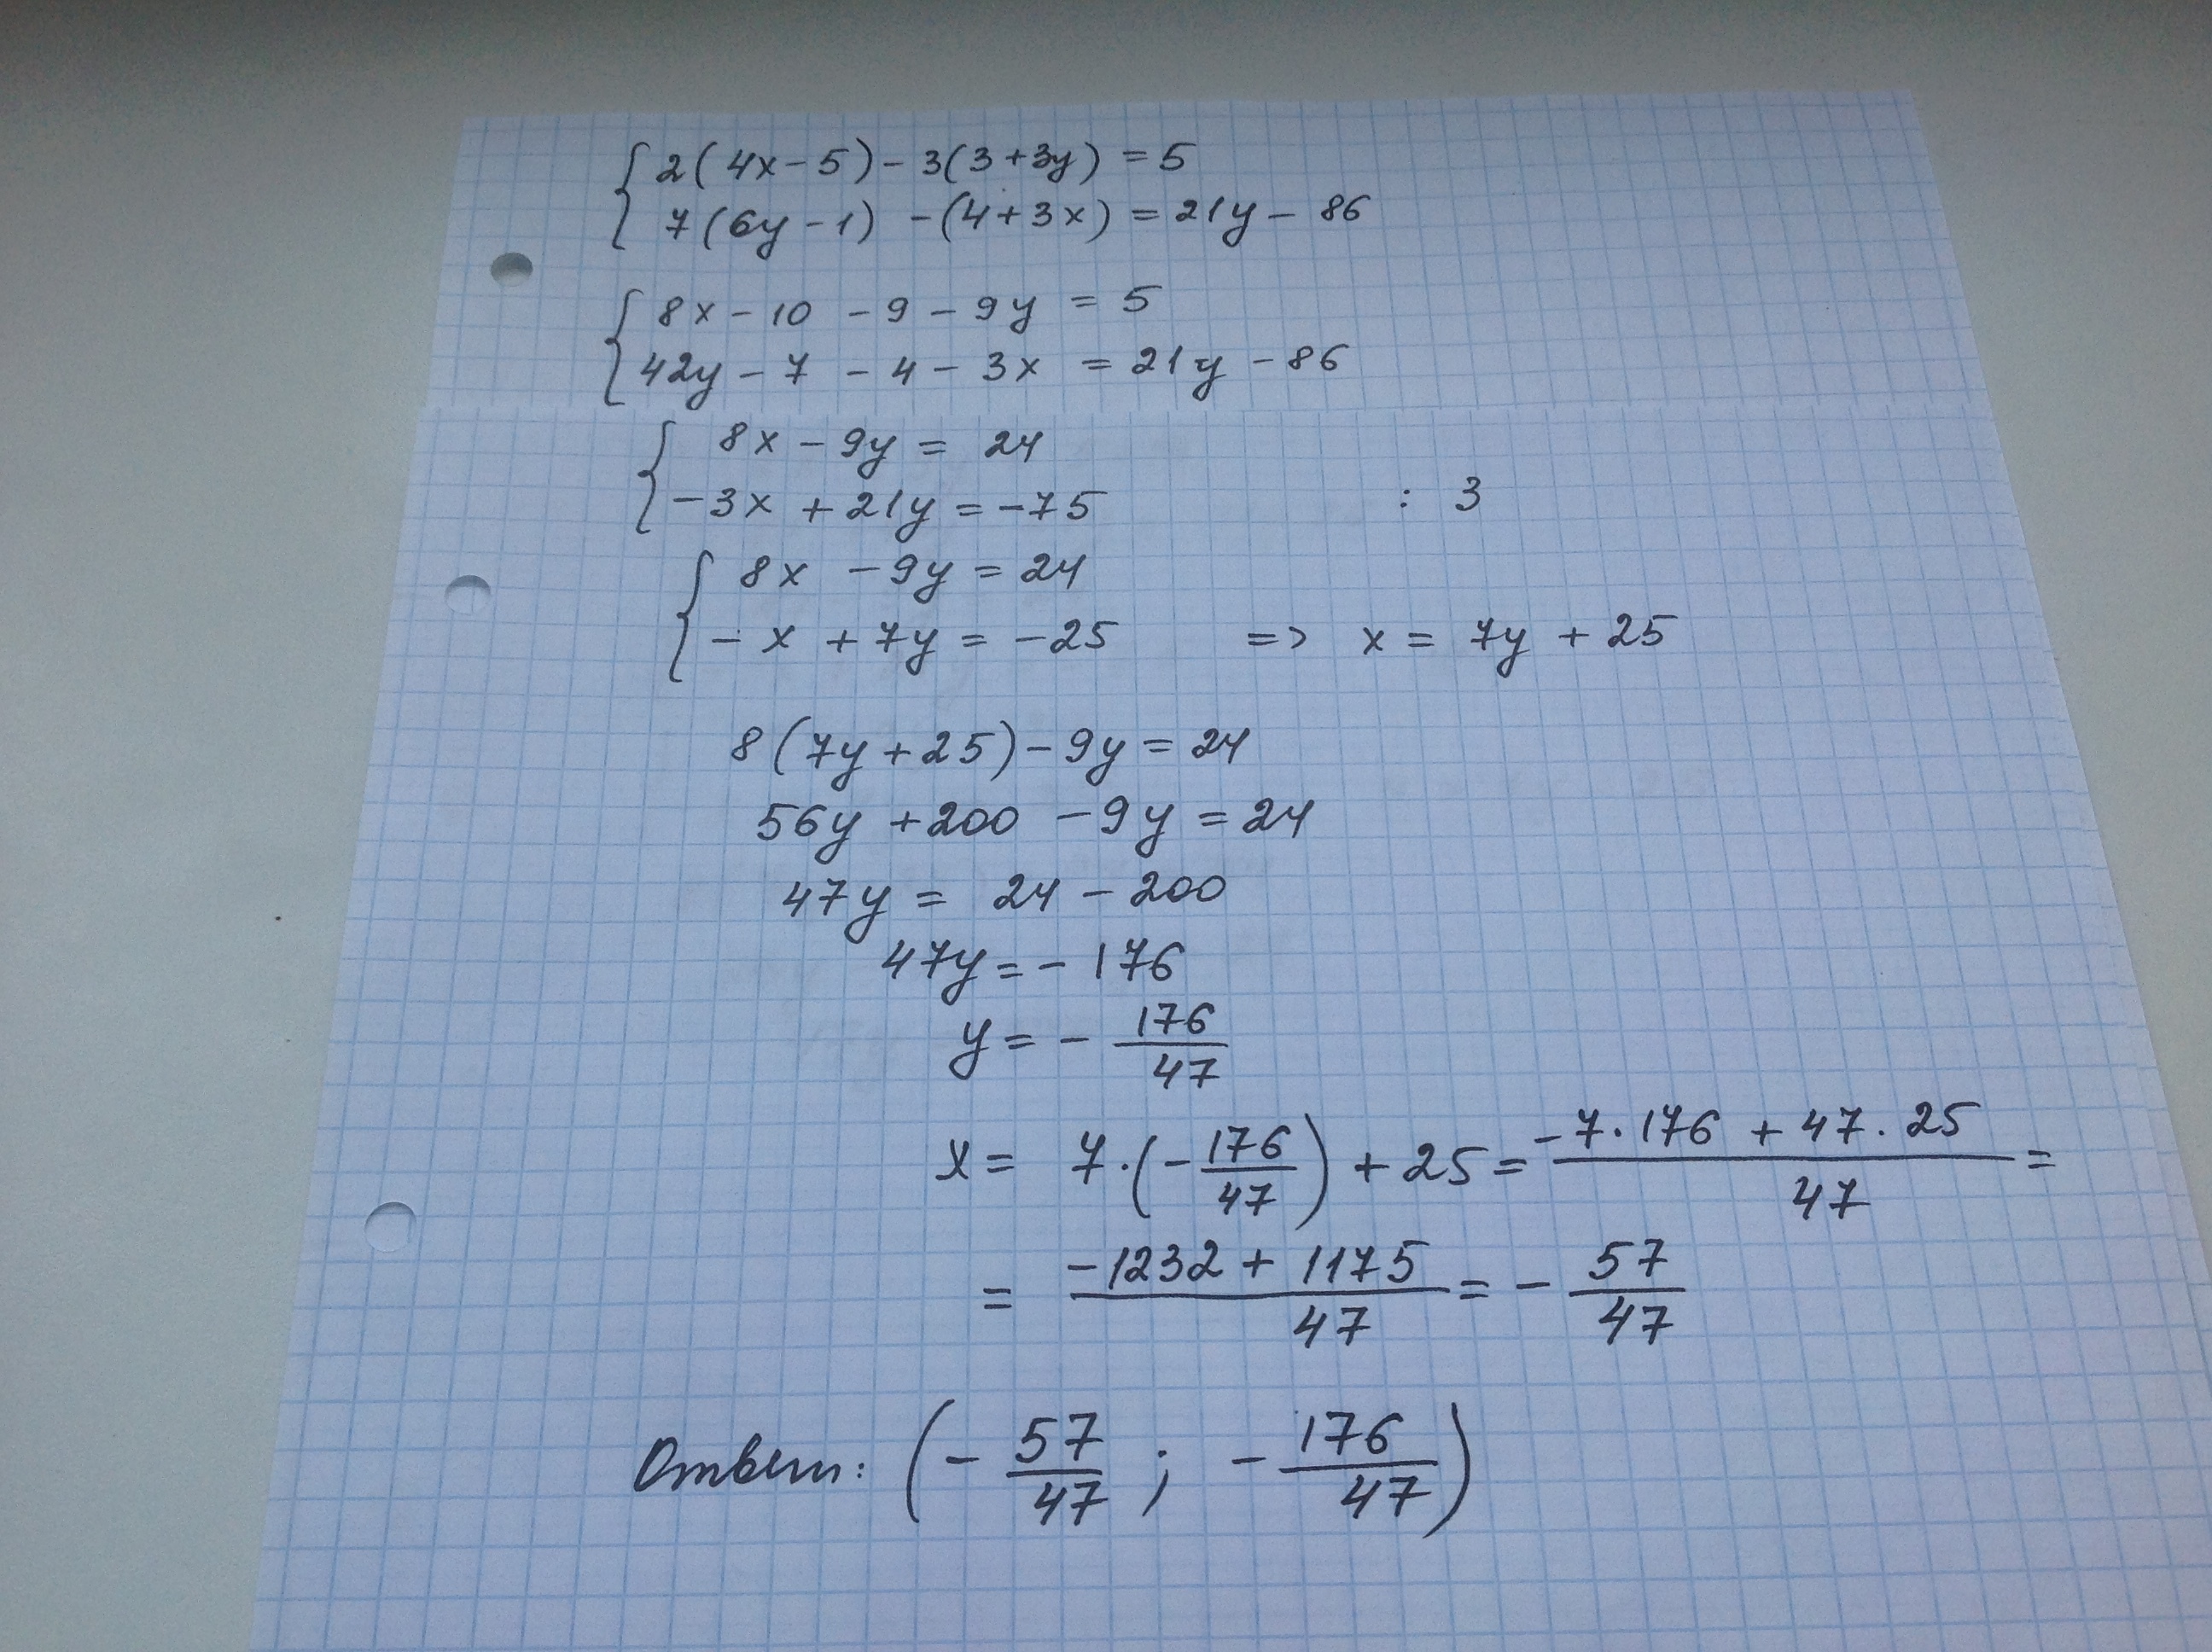 { 2(4x-5)-3(3+3y) = 5
7(6y-1) -(4+3x) = 21y - 86
{ 8x - 10 - 9 - 9y = 5
42y - 7 - 4 - 3x = 21y - 86
{ 8x - 9y = 24
-3x + 21y = -75 : 3
{ 8x - 9y = 24
- x + 7y = -25 => x = 7y + 25
8(7y+25)-9y = 24
56y +200 -9y = 24
47y = 24 - 200
47y = - 176
y = - 176/47
x = 7·(-176/47) + 25 = (-7·176 + 47·25)/47 =
= (-1232 + 1175)/47 = - 57/47
Ответ: (- 57/47 ; - 176/47)